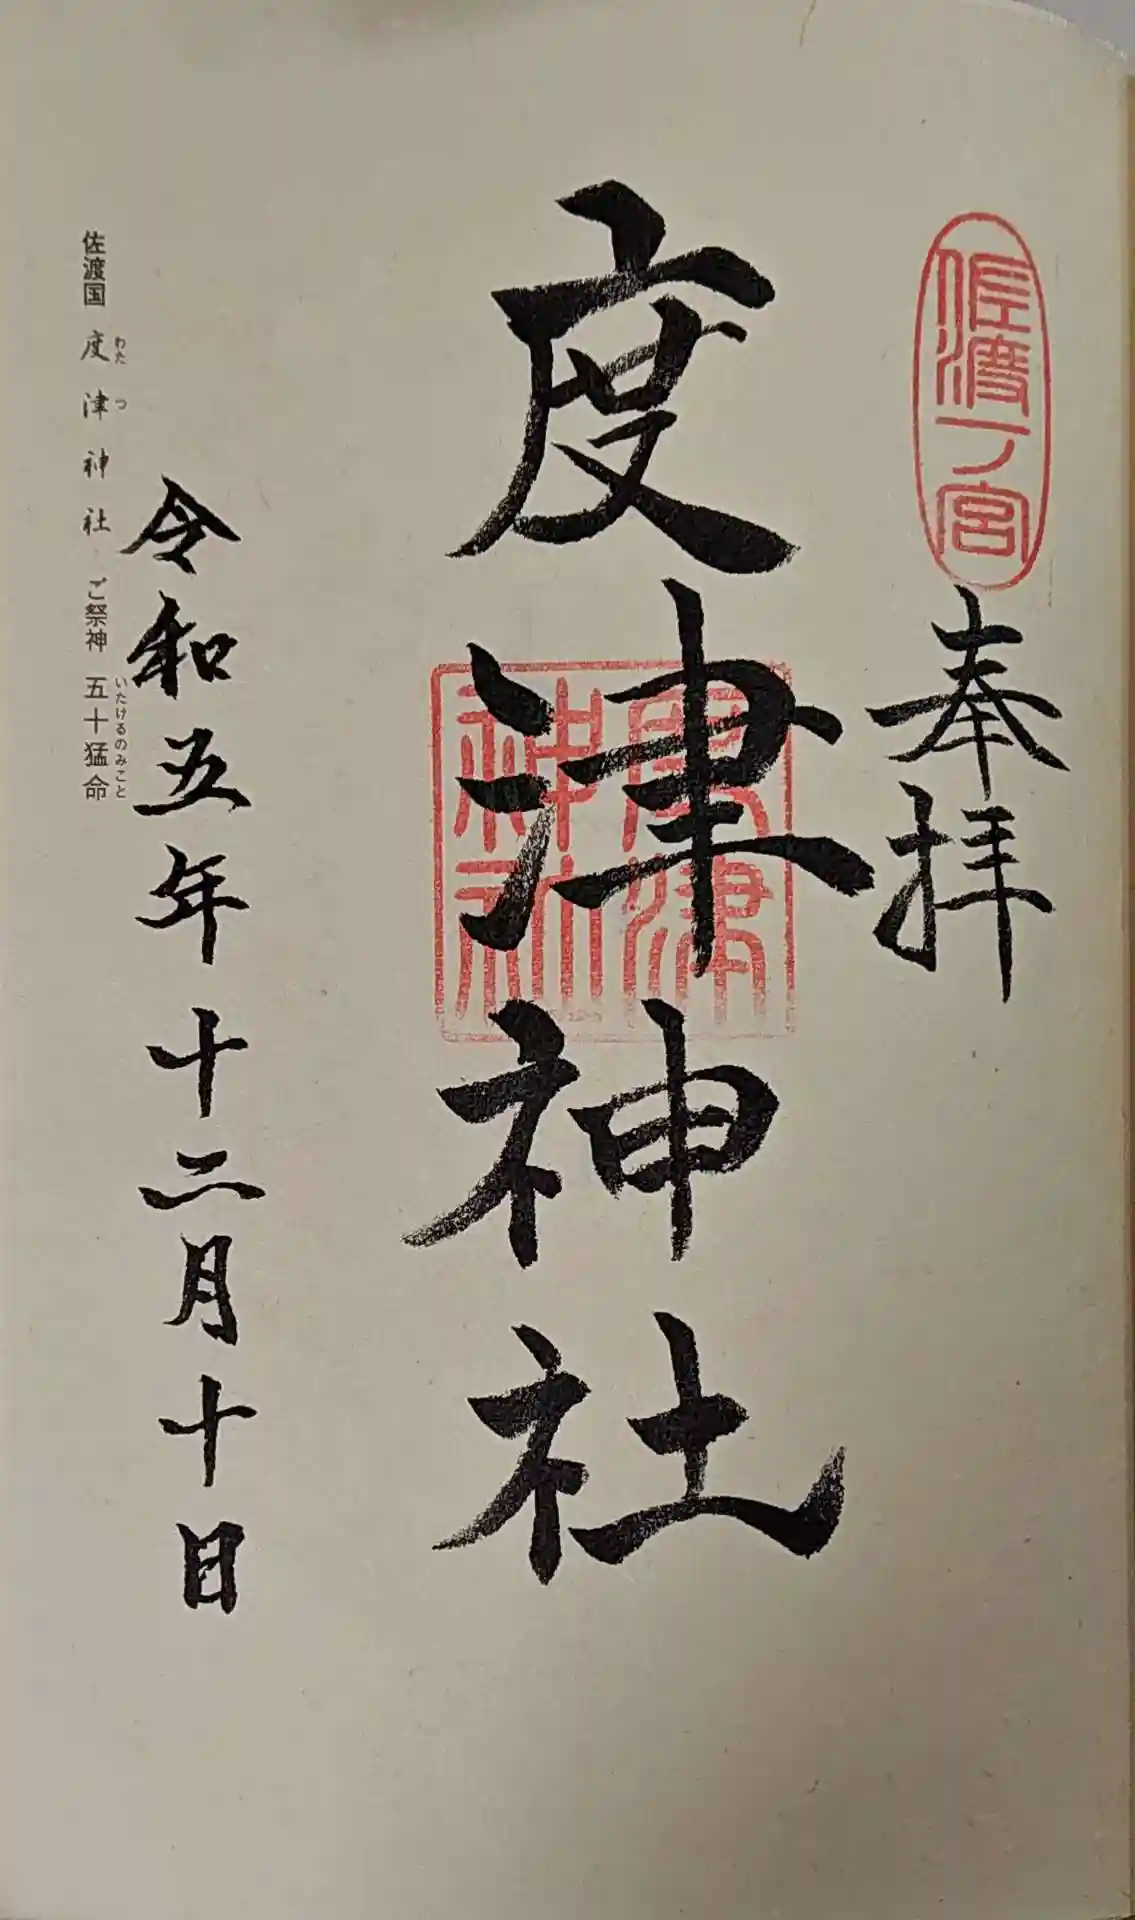 佐渡一ノ宮
奉拝
度津神社
度津
神社
令和五年十二月十日
佐渡国 度津神社 ご祭神 五十猛命
わた つ いたけるのみこと